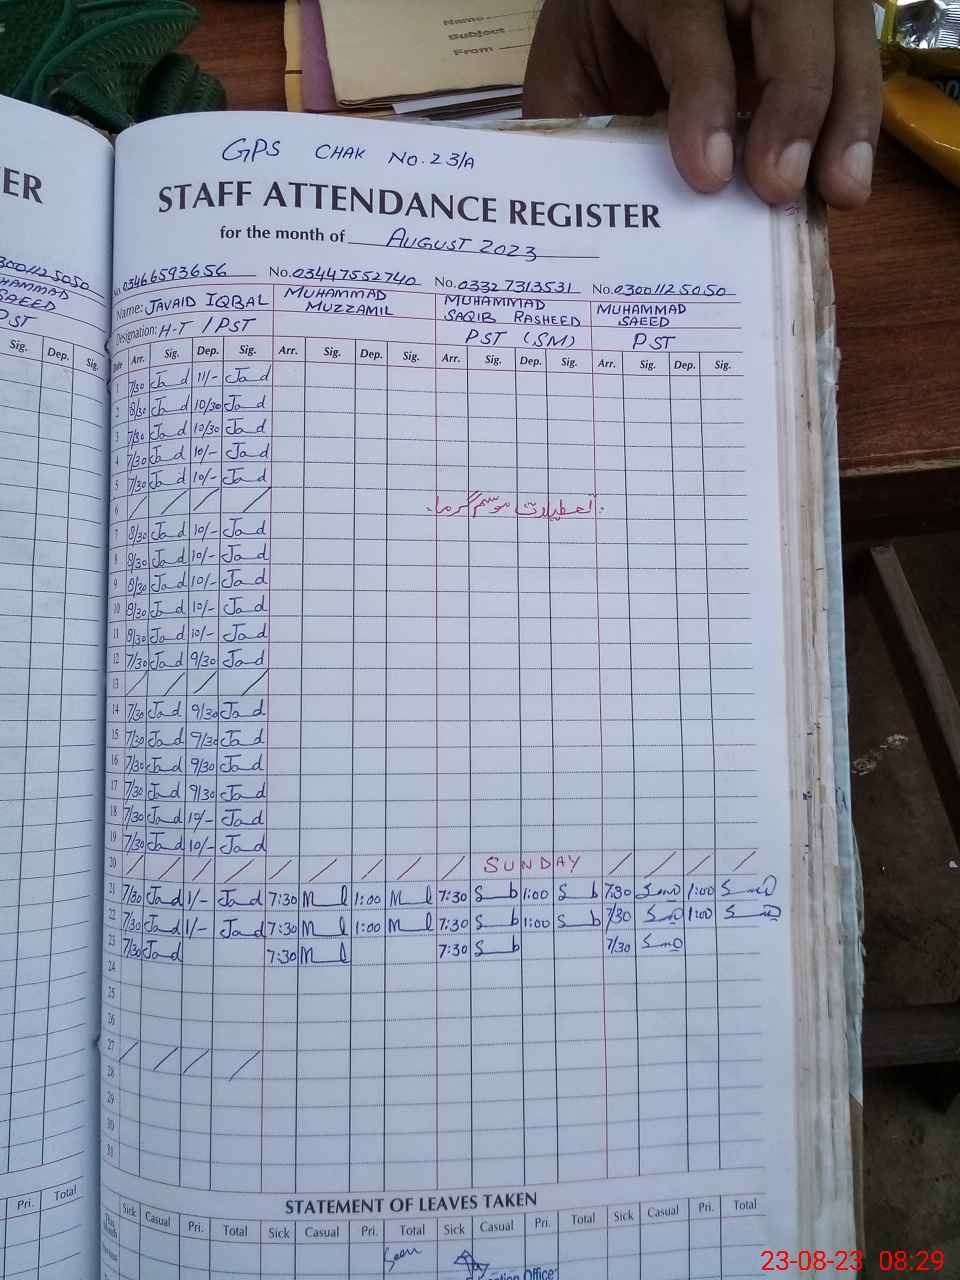 Name
Subject
From
ER
GPS CHAK No. 23/A
STAFF ATTENDANCE REGISTER
for the month of AUGUST 2023
03001125050 No. 03466593656 No. 03447552740 No. 03327313531 No. 03001125050
HAMMAD SAEED Name: JAVAID IQBAL MUHAMMAD MUZZAMIL MUHAMMAD SAQIB RASHEED MUHAMMAD SAEED
PST Designation: H-T / PST PST (SM) PST
Sig. Dep. Sig. Date Arr. Sig. Dep. Sig. Arr. Sig. Dep. Sig. Arr. Sig. Dep. Sig. Arr. Sig. Dep. Sig.
1 7/30 Jad 11/- Jad
2 8/30 Jad 10/30 Jad
3 7/30 Jad 10/30 Jad
4 7/30 Jad 10/- Jad
5 7/30 Jad 10/- Jad
6 / / / / تعطیلات موسم گرما
7 8/30 Jad 10/- Jad
8 8/30 Jad 10/- Jad
9 8/30 Jad 10/- Jad
10 8/30 Jad 10/- Jad
11 8/30 Jad 10/- Jad
12 7/30 Jad 9/30 Jad
13 / / / /
14 7/30 Jad 9/30 Jad
15 7/30 Jad 9/30 Jad
16 7/30 Jad 9/30 Jad
17 7/30 Jad 9/30 Jad
18 7/30 Jad 10/- Jad
19 7/30 Jad 10/- Jad
20 / / / / / / / / / SUNDAY / / / /
21 7/30 Jad 1/- Jad 7:30 M l 1:00 M l 7:30 S b 1:00 S b 7:30 1:00
22 7/30 Jad 1/- Jad 7:30 M l 1:00 M l 7:30 S b 1:00 S b 7/30 1:00
23 7/30 Jad 7:30 M l 7:30 S b 7/30
24
25
26
27 / / / /
28
29
30
31
STATEMENT OF LEAVES TAKEN
Pri. Total Sick Casual Pri. Total Sick Casual Pri. Total Sick Casual Pri. Total Sick Casual Pri. Total
Seen
Office
23-08-23 08:29